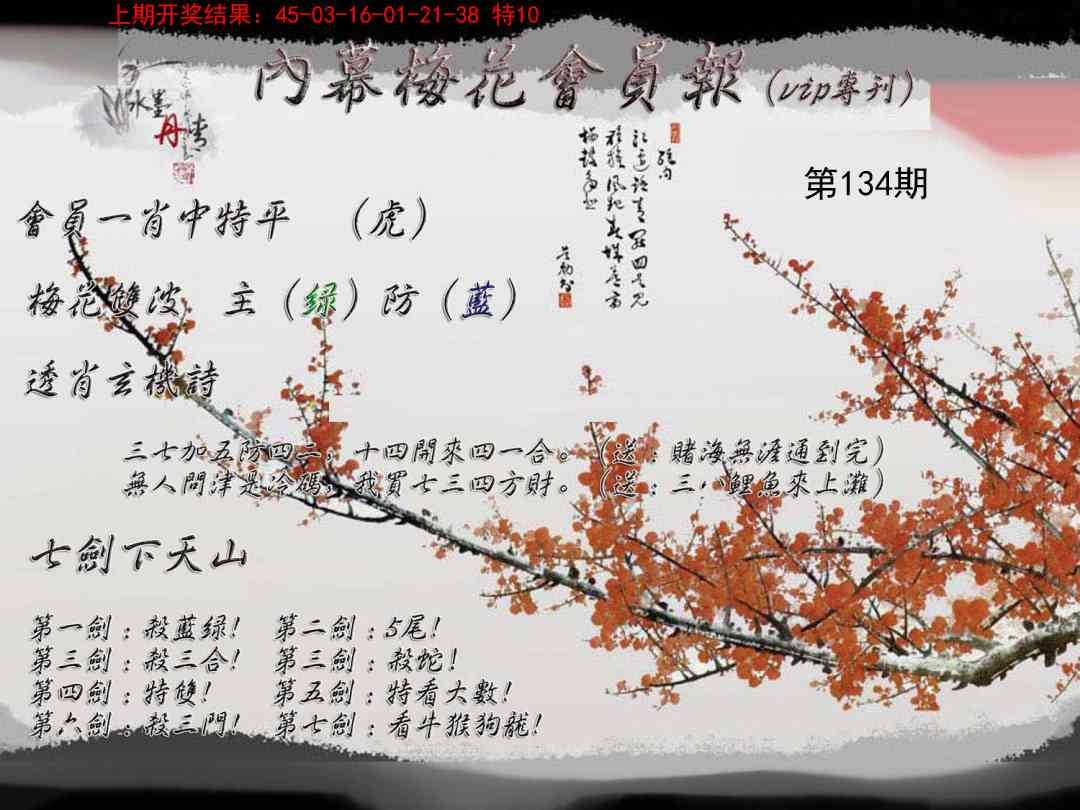 上期开奖结果：45-03-16-01-21-38 特10
內幕梅花會員報(vip專刊)
水墨
丹青
第134期
會員一肖中特平 （虎）
梅花雙波 主（绿）防（藍）
透肖玄機詩
三七加五防四二，十四開來四一合。（送：賭海無涯通到完）
無人問津是冷碼，我買七三四方財。（送：三八鯉魚來上灘）
七劍下天山
第一劍：殺藍绿！ 第二劍：5尾！
第三劍：殺三合！ 第三劍：殺蛇！
第四劍：特雙！ 第五劍：特看大數！
第六劍：殺三門！ 第七劍：看牛猴狗龍！